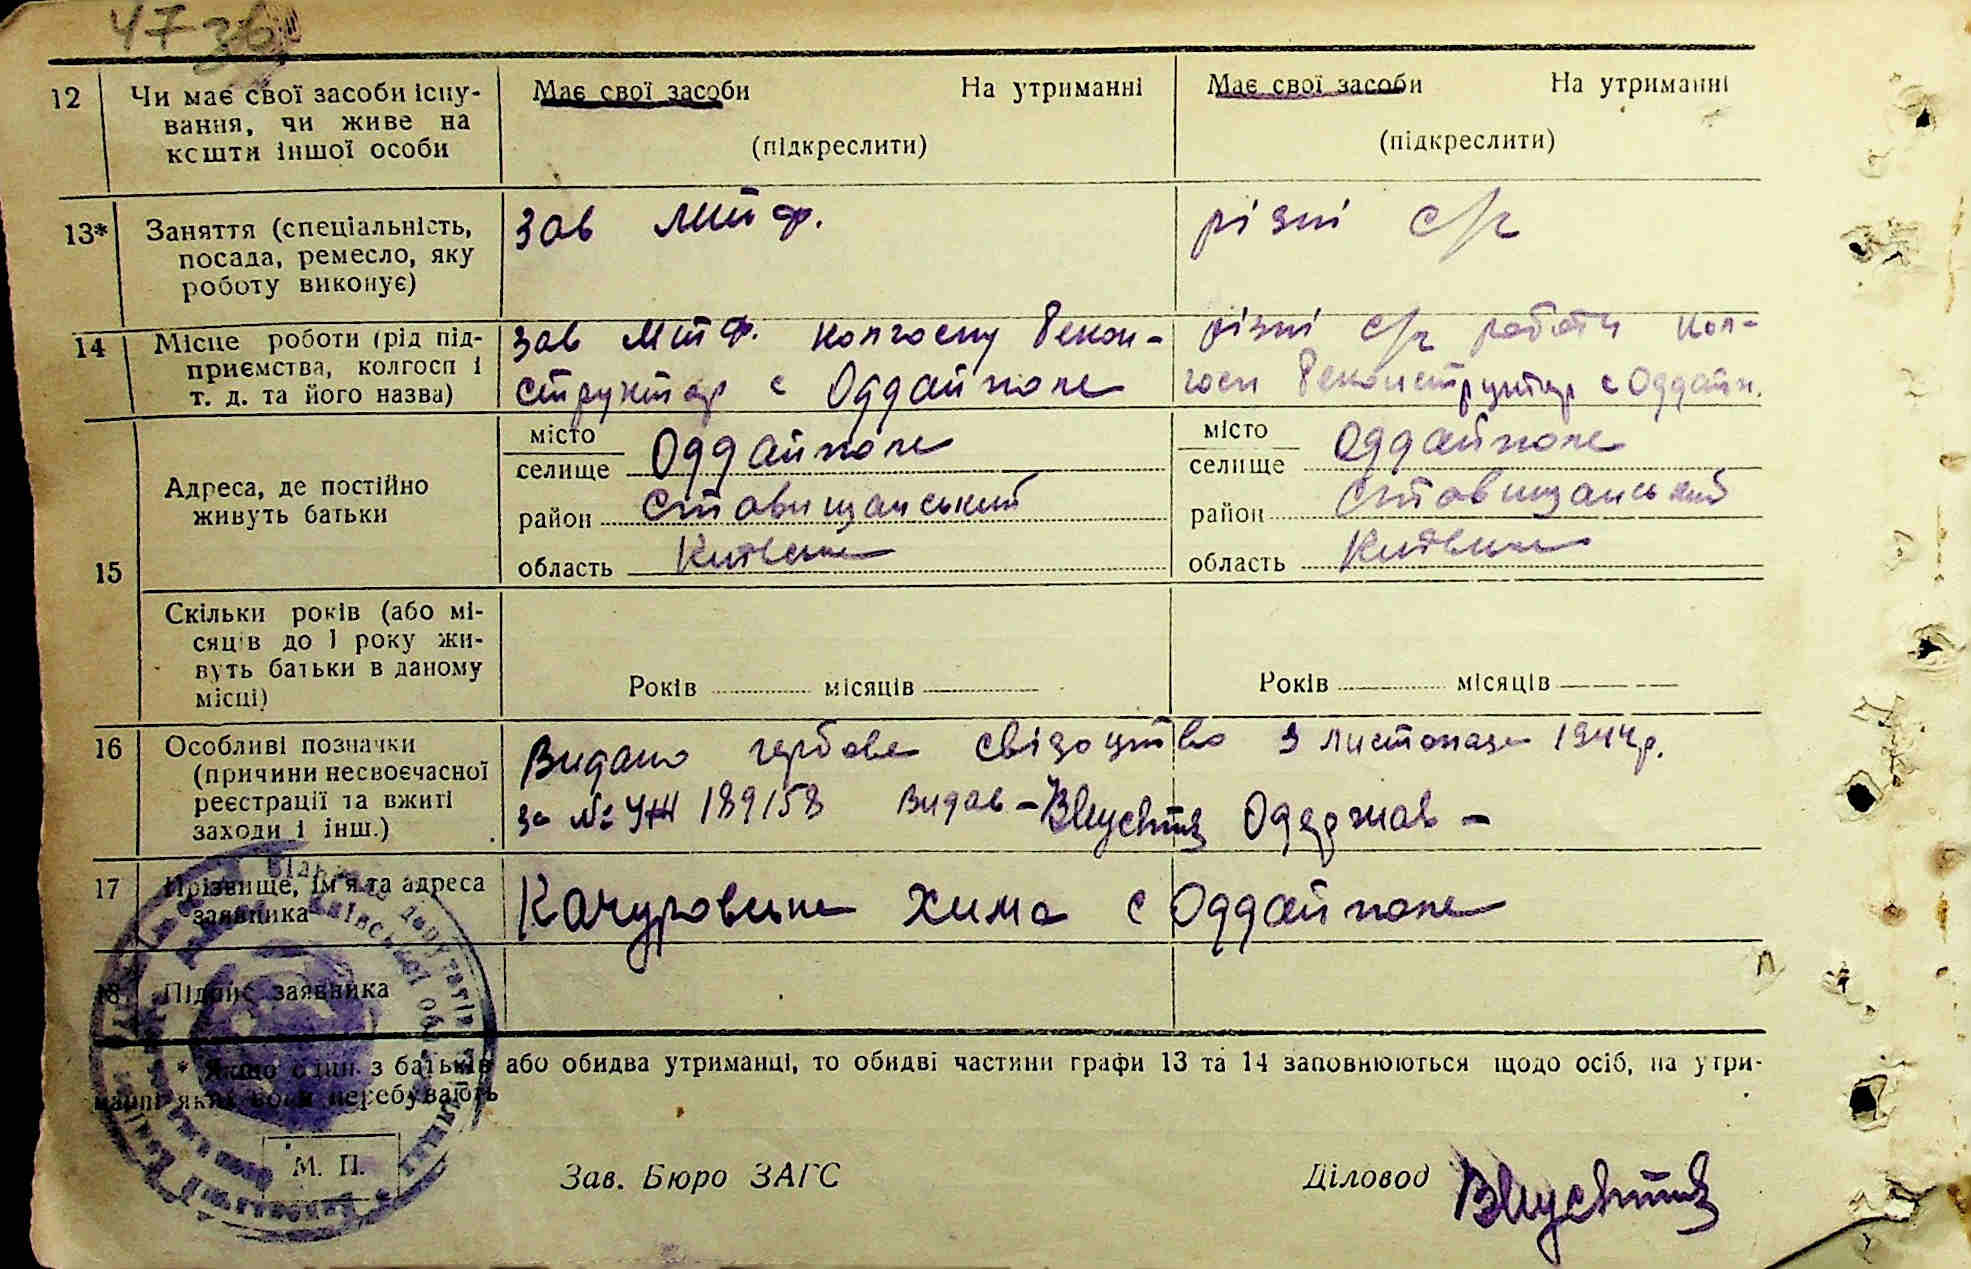 47 зв
12 Чи має свої засоби існу- Має свої засоби На утриманні Має свої засоби На утриманні
вання, чи живе на (підкреслити) (підкреслити)
кошти іншої особи
13* Заняття (спеціальність, Зав МТФ. різні с/г
посада, ремесло, яку
роботу виконує)
14 Місце роботи (рід під- Зав МТФ. колгоспу Рекон- різні с/г роботи кол-
приємства, колгосп і структор с Оддайполе госп Реконструктор с Оддайп.
т. д. та його назва)
15 Адреса, де постійно живуть батьки
місто селище Оддайполе місто селище Оддайполе
район Ставищанський район Ставищанський
область Київська область Київська
Скільки років (або мі-
сяців до 1 року жи-
вуть батьки в даному
місці) Років місяців Років місяців
16 Особливі позначки Видано гербове свідоцтво 3 листопада 1944р.
(причини несвоєчасної
реєстрації та вжиті за № УЖ 189158 Видав - Одержав -
заходи і інш.)
17 Прізвище, ім'я та адреса Качуровська Хима с Оддайполе
заявника
18 Підпис заявника
* Якщо один з батьків або обидва утриманці, то обидві частини графи 13 та 14 заповнюються щодо осіб, на утри-
манні яких вони перебувають
М. П. Зав. Бюро ЗАГС Діловод